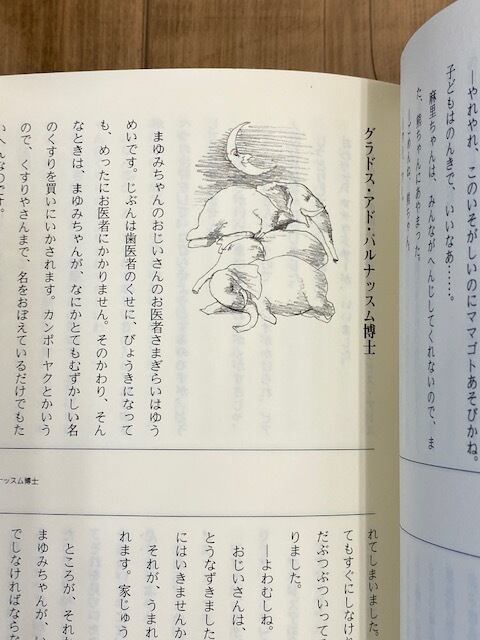 —やれやれ、このいそがしいのにママゴトあそびかね。
子どもはのんきで、いいなあ……。
麻里ちゃんは、みんながへんじしてくれないので、ま
た、熊ちゃんにあやまった。
グラドス・アド・パルナッスム博士
まゆみちゃんのおじいさんのお医者さまぎらいはゆう
めいです。じぶんは歯医者のくせに、びょうきになって
も、めったにお医者にかかりません。そのかわり、そん
なときは、まゆみちゃんが、なにかとてもむずかしい名
のくすりを買いにいかされます。カンポーヤクとかいう
ので、くすりやさんまで、名をおぼえているだけでもた
いへんなのです。
ナッスム博士
れてしまいました。
てもすぐにしなけ
だぶつぶついって
りました。
—よわむしね。
おじいさんは、
とうなずきました
にはいきませんか
それが、うまれ
れます。家じゅう
ところが、それ
まゆみちゃんが、い
でしなければなら